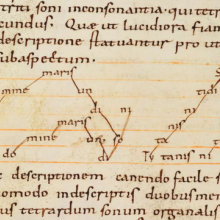 triti soni inconsonantia. quiteti
cundus. Quæ ut lucidiora fian
descriptione statuantur pro ut
subaspectum.
maris
mine un di
maris ni
mine so
do
tanis ni
e descriptionem canendo facile s
omodo indescriptis duobusme
us tetrardum sonum organali